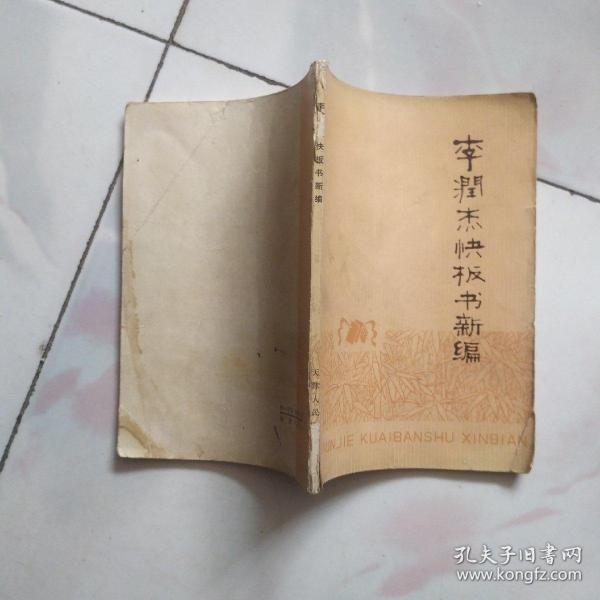 李潤杰快板书新编
UNJIE KUAIBANSHU XINBIAN
快板书新编
天津人民
孔夫子旧书网
www.kongfz.com